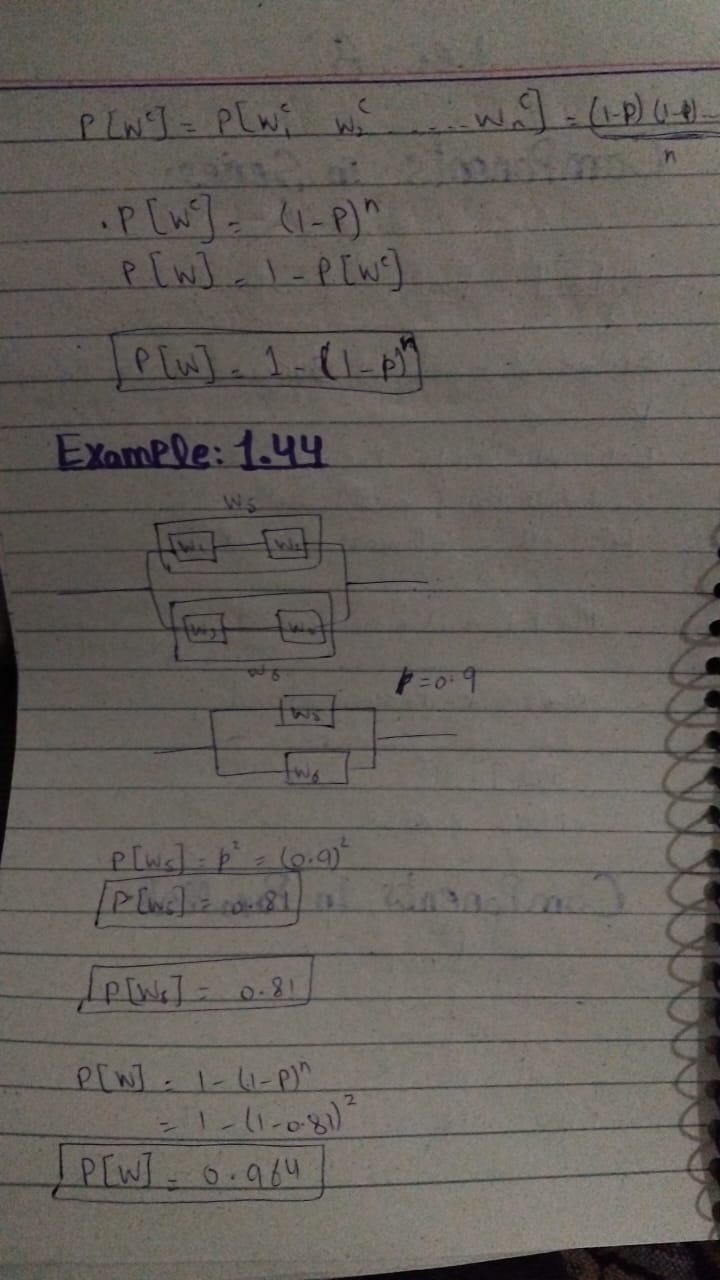 P[Wᶜ] = P[W₁ᶜ W₂ᶜ ...... Wₙᶜ] = (1-P) (1-P) ...
n
. P[Wᶜ] = (1-P)ⁿ
P[W] = 1 - P[Wᶜ]
P[W] = 1 - (1-P)ⁿ
Example: 1.44
W5
W1 W2
W3 W4
W6
P=0.9
W5
W6
P[W5] = p² = (0.9)²
P[W5] = 0.81
P[W6] = 0.81
P[W] = 1-(1-P)ⁿ
= 1-(1-0.81)²
P[W] = 0.964